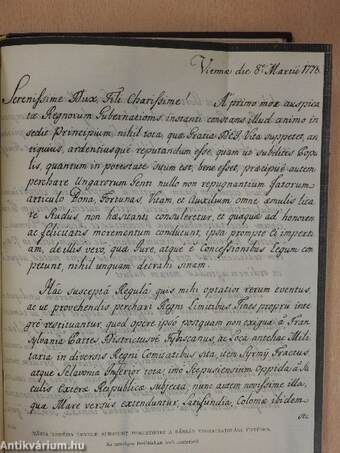 Viennæ die 8va Martii 1778
Serenissime Dux, Fili Charissime! A primo mox auspica
tæ Regnorum Gubernationis instanti constans illud animo in
sedit Principium, nihil tota, qua Ratio DEI Vita suppetet, an
tiquius, ardentiusque reputandum esse, quam ut subditis Popu
lis, quantum in potestate situm est, bene esset, præcipuè autem
percharæ Ungarorum Genti nullo non repugnantium fatorum
articulo Bona, Fortunas, Vitam, et Auxilium omne, æmulis lica
tè Studiis non hæsitanti consuleretur, et quæquæ ad honorem
ac felicitatis incrementum conducunt, ipsis prompte Ei imperti
am, de illis vero, quæ Jure, atque è Concessionibus Legum com
petunt, nihil unquam detrahi sinam.
Hac susceptâ Regulâ quis mihi optatior rerum eventus,
ac ut provehendis perchari Regni Limitibus Fines proprii inte
grè restituantur, quod opere ipso postquam non exiguâ è Tran
sylvania Partes Districtusve Fybiscanus, ac Loca antehac Mili
taria in diversis Regni Comitatibus sita, item Syrmy Tractus,
atque Sclavonia Inferior tota, imo Scepusiensium Oppida à Ju
ribus Exteræ Reipublicæ subjecta, nunc autem novissime illa,
qua Mare versus extenduntur, Latifundia, Coloniæ ibidem
etc.
MÁRIA TERÉZIA
antikvarium.hu